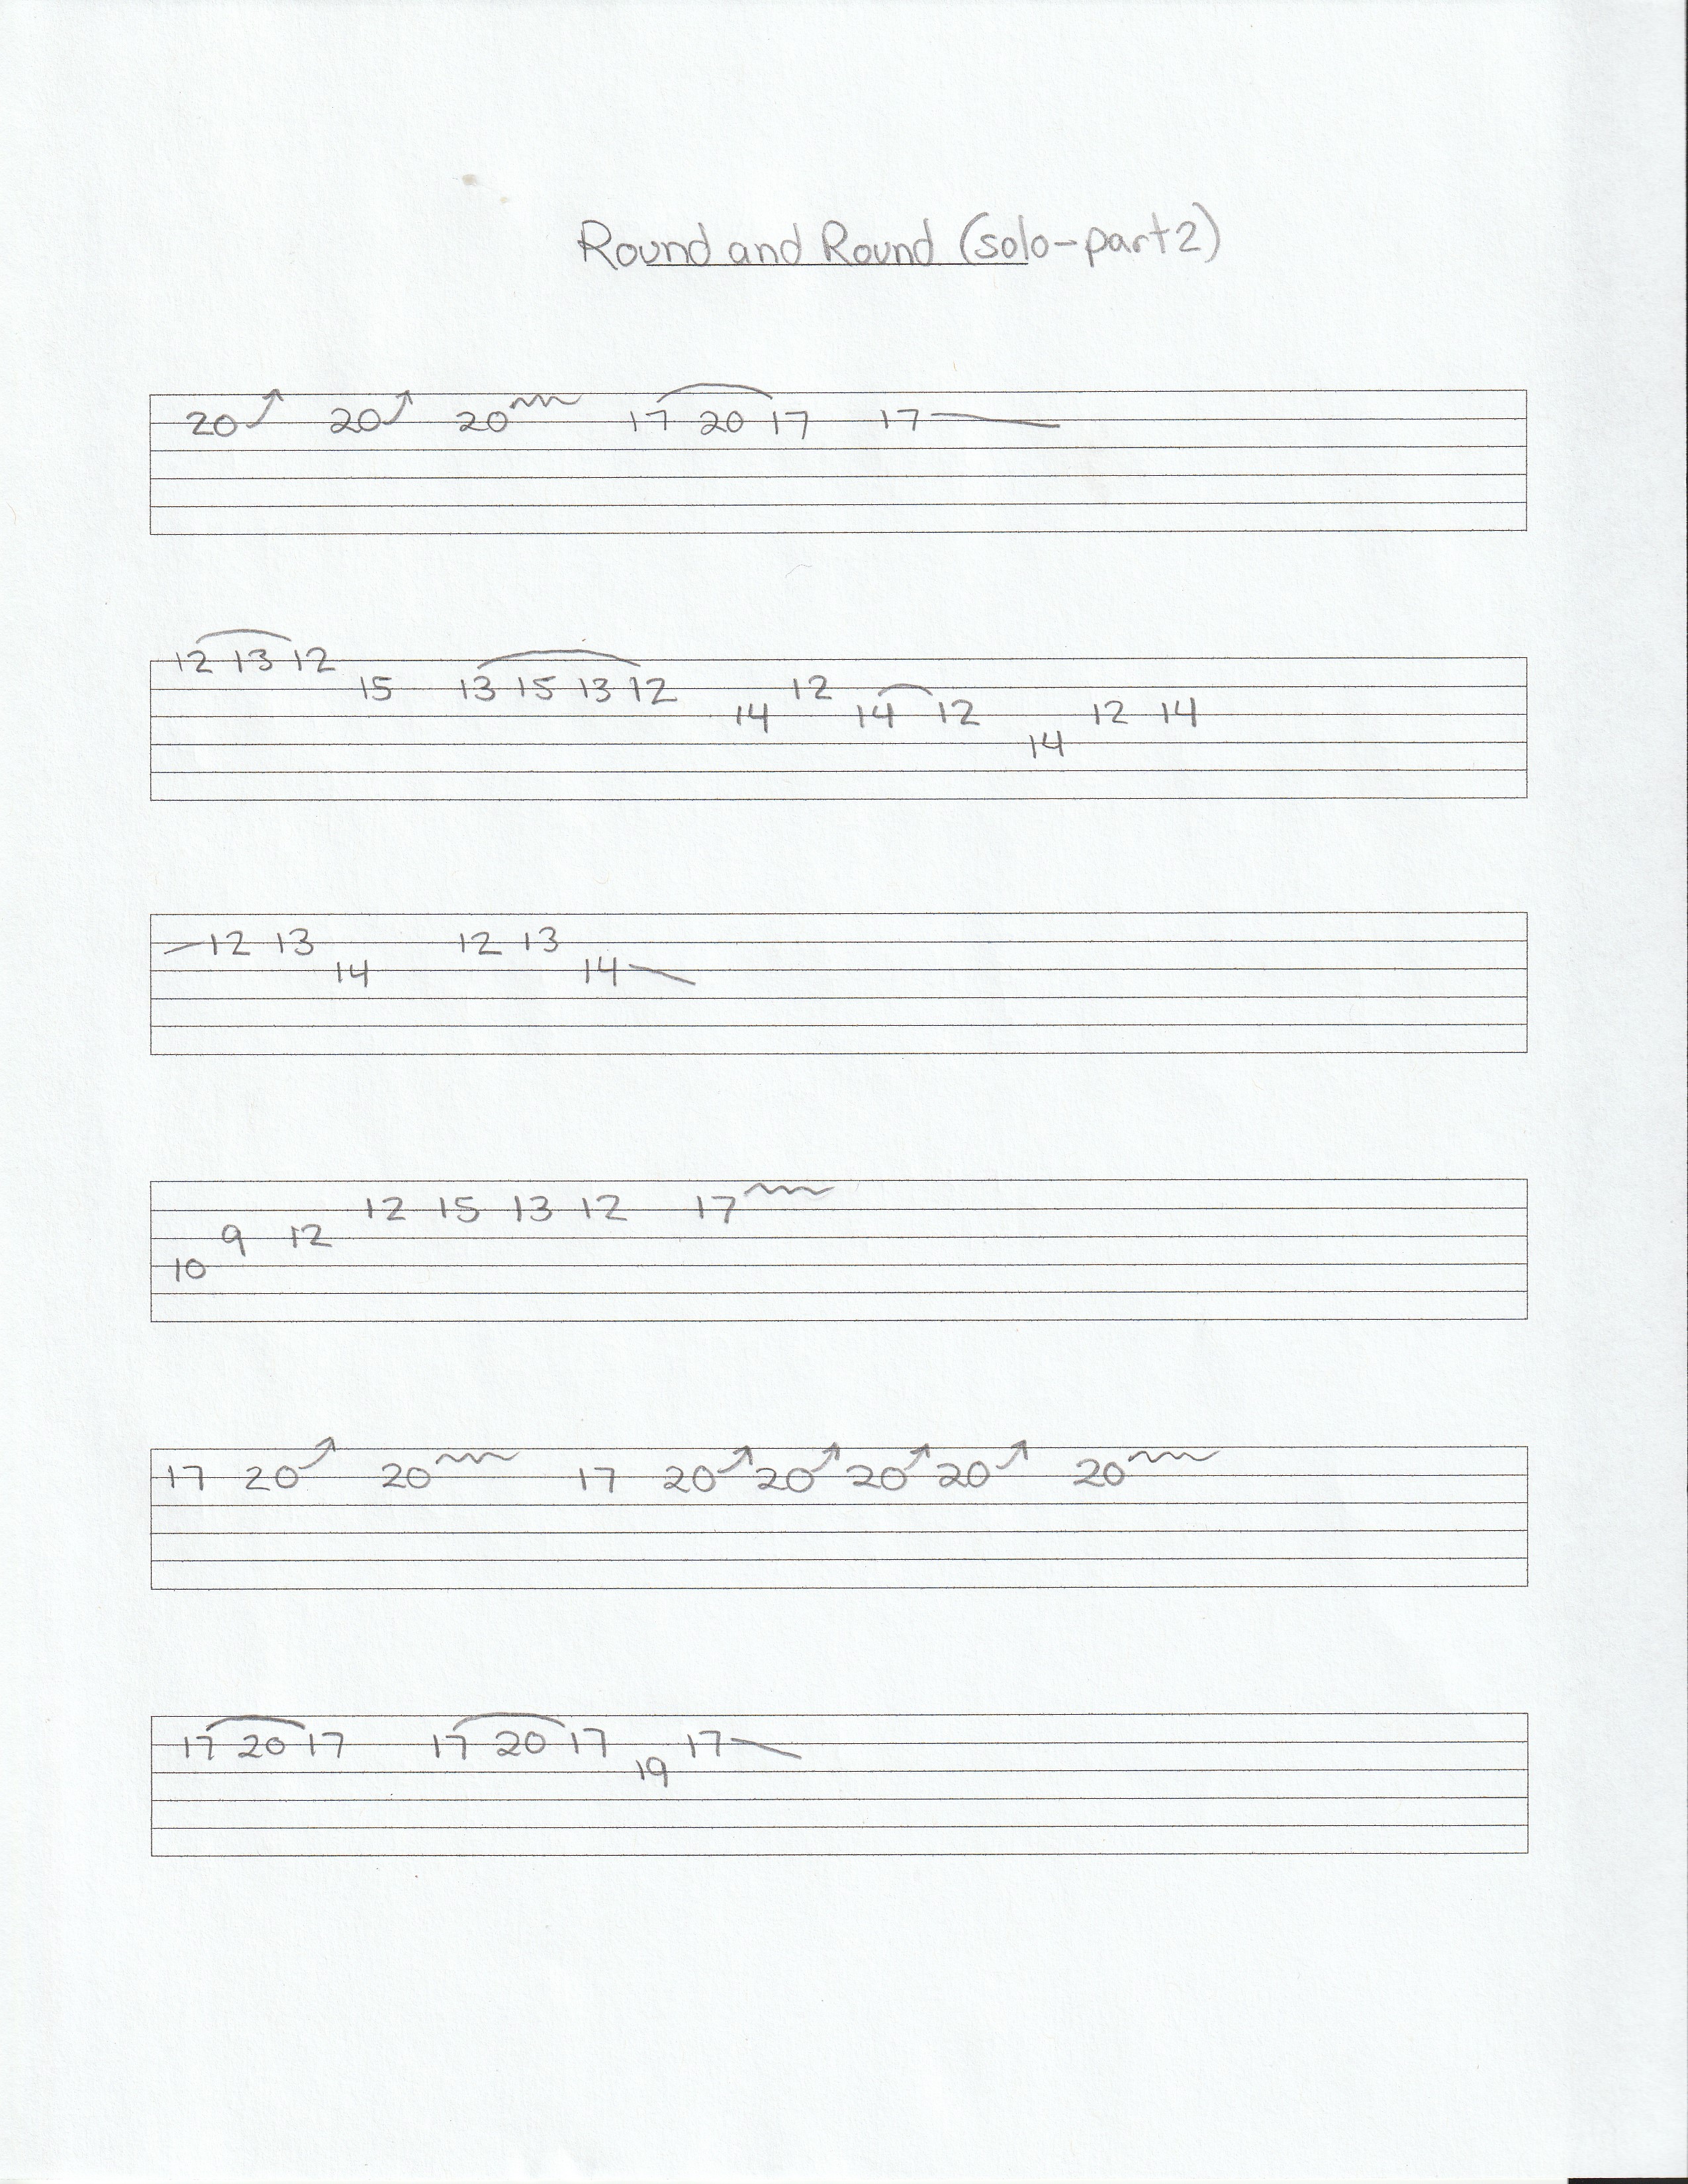 Round and Round (solo-part2)
20 20 20 17 20 17 17
12 13 12
15 13 15 13 12 12
14 14 12 12 14
14
12 13 12 13
14 14
12 15 13 12 17
9 12
10
17 20 20 17 20 20 20 20 20
17 20 17 17 20 17 17
19